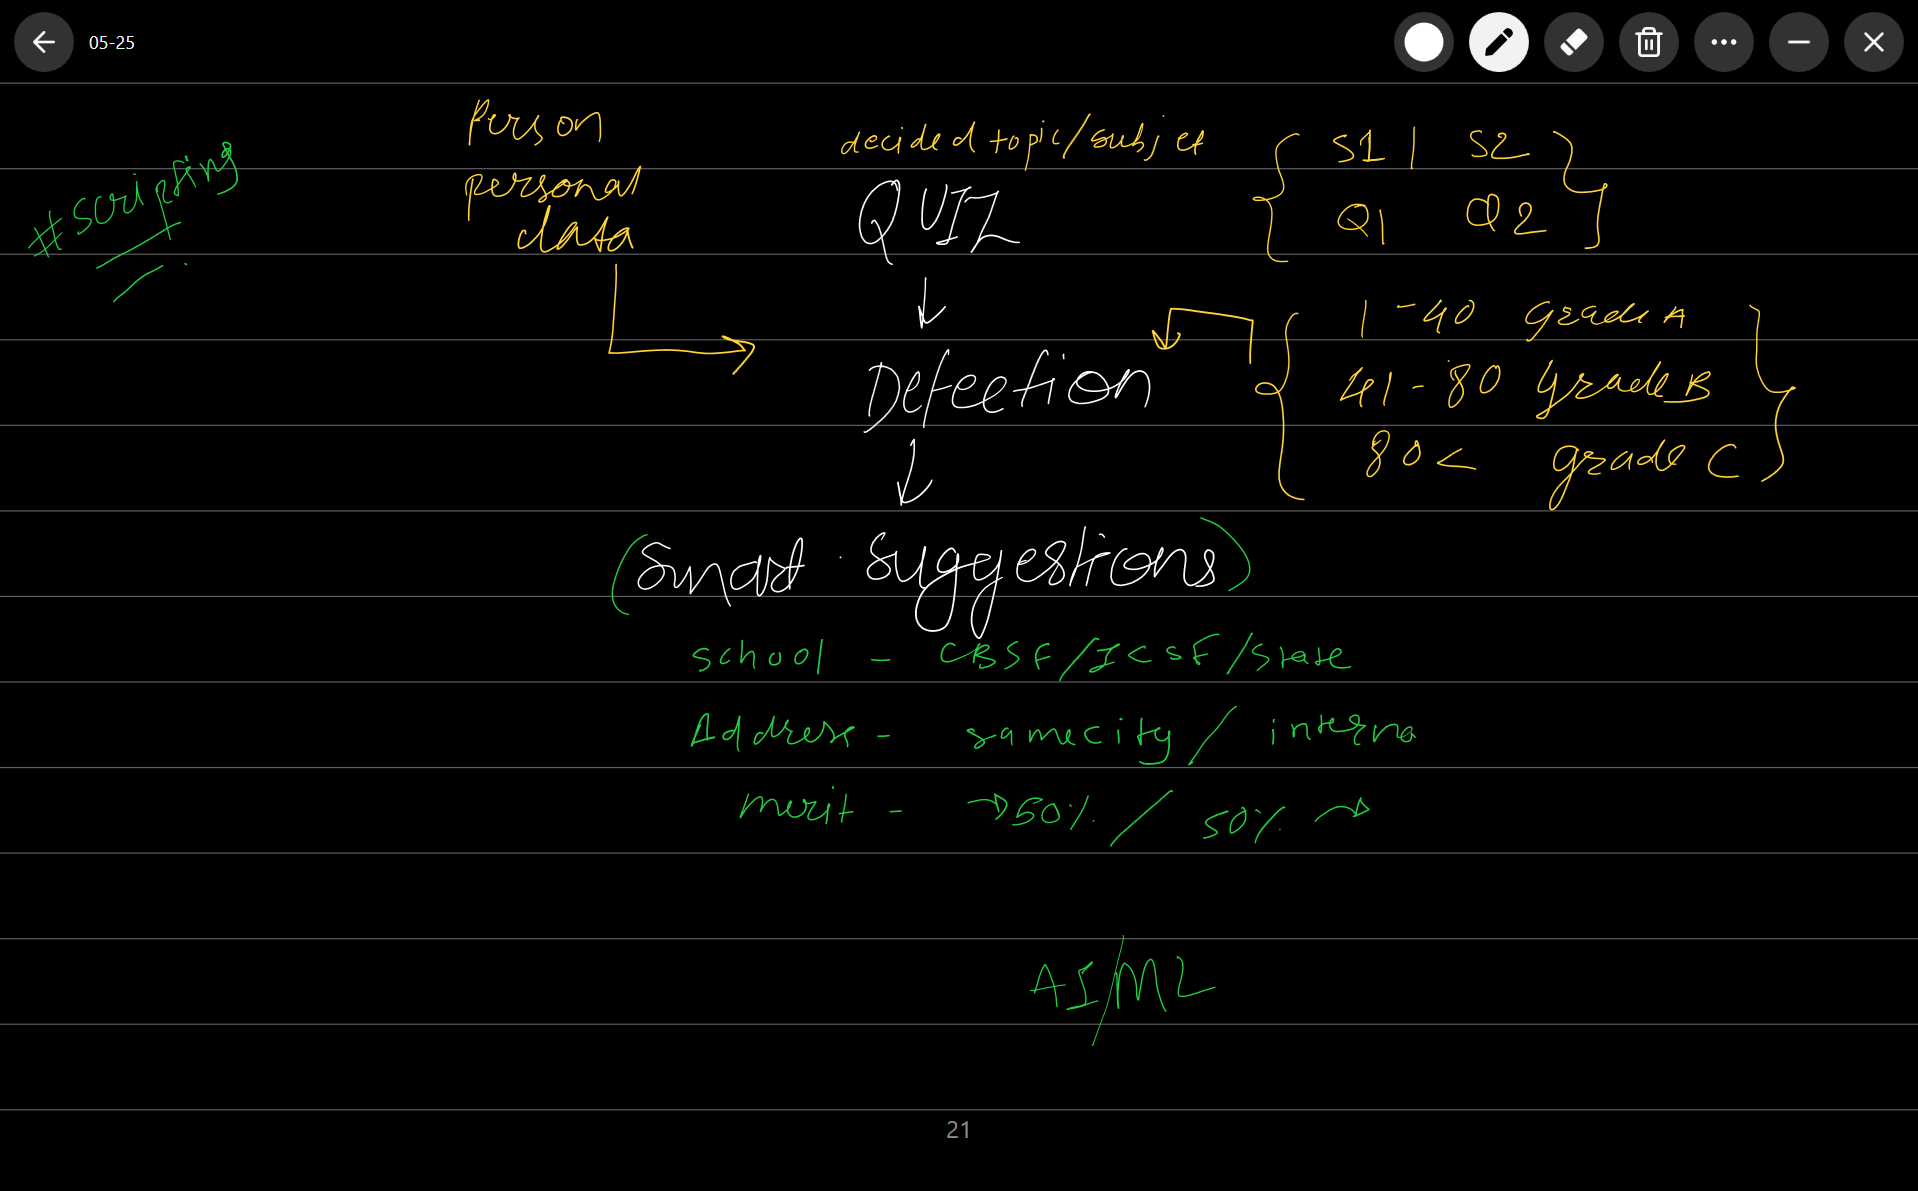 05-25
#scripting
Person
personal
data
decided topic/subject
QUIZ
S1 | S2
Q1 Q2
Detection
1-40 grade A
41-80 grade B
80< grade C
(Smart Suggestions)
school - CBSE/ICSE/State
Address - samecity / interna
merit - →50% / 50% →
AI/ML
21